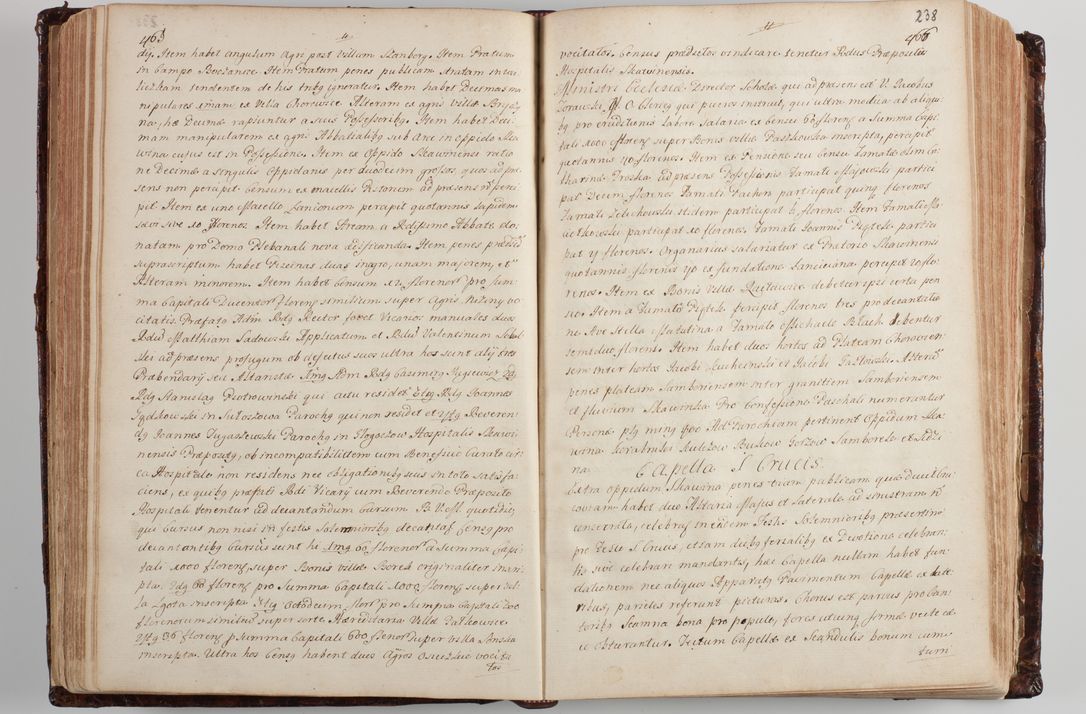 465
dij. Item habet angulum Agri post Villam Stanberg. Item Pratum
in Campo Item Pratum penes publicam stratam in
tendentem de his ignoratur. Item habet Decimas ma
nipulares ex Villa Chorowice Alteram ex agris Villæ
na, hæ Decimæ rapiuntur a suis Possessoribus. Item habet Deci
mam manipularem ex agris Abbatialibus sub Arce in oppido Ska
wina cujus est in Possessione. Item ex Oppido Skawinensi ratio
ne Decimæ a singulis Oppidanis per duodecim grossos, quos ad præ
sens non percipit. Censum ex macellis Pistorum ad præsens n perci
pit. Item ex uno Macello Lanionum percipit quotannis lapidem
sive 10 florenos. Item habet Aream a Rdissimo Abbate do
natam pro Domo Plebanali nova ædificanda. Item penes
suprascriptum habet Piscinas duas unam majorem, et
Alteram minorem. Item habet Censum 12 florenor pro Sum
ma Capitali Ducentor florenorum similium super Agris vo
citatis. Præfatus Adm Rdus Rector fovet Vicarios manuales duos
Rdum Matthiam Sadowski Applicatum et Rdum Valentinum
ski ad præsens profugum ob defectus suos ultra hos sunt alij tres
Præbendarij seu Altaristæ. Imus Adm Rdus Casimirus 2dus
Rdus Stanislaus Piotrowinski qui actu residet 3tius Rdus Joannes
in Sułoszowa Parochus qui non residet et Reveren
dus Joannes Parochus in Głogoczow Hospitalis Skawi
nensis Præpositus, ob incompatibilitatem cum Beneficio Curato cir
ca Hospitale non residens nec obligationibus suis in toto satisfa
ciens, ex quibus præfati Rdi Vicarij cum Reverendo Præposito
Hospitali tenentur ad decantandum Cursum B. V. M. quotidie,
qui Cursus non nisi in festis Solemnioribus decantatur Census pro
decantantibus Cursus sunt hi Imus 60 florenor a Summa Capi
tali 1000 florenor super Bonis Villæ Borek originaliter inscri
pta. 2dus 60 florenor pro Summa Capitali 1000 florenor super Vil
la Zgota inscripta 3tius Octodecim flor pro Summa Capitali 300
florenorum similium super sorte Hæreditaria Villæ Paszkowice.
36 florenor p Summa Capitali 600 florenor super Villa
inscripta. Ultra hos Census habent duos Agros vocita
tos
238
466
vocitatos. Census prædictos vindicare tenetur Rdus Præpositus
Hospitalis Skawinensis.
Ministri Ecclesiæ. Director Scholæ qui ad præsens est V. Jacobus
Zorawski, O. Clericus qui pueros instruit, qui ultra modica ab aliqui
bus pro eruditionis labore salaria ex censu florenor a Summa Capi
tali 1000 florenor super Bonis Villæ Paszkowka inscripta, percipit
quotannis 40 florenos. Item ex Pensione seu Censu Famatæ olim Ca
tharinæ Proszka ad præsens Possessionis Famati partici
pat Decem florenos. Famati Pachon participat quinque florenos
Famati Zelichowski itidem participat 6 florenos. Item Famati
participat 10 florenos. Famati Joannis Piętek partici
pat 4 florenos. Organarius salariatur ex Prætorio Skawinensi
quotannis florenis 40 ex fundatione percipit 20 flo
renos. Item ex Bonis Villæ debetur ipsi certa pen
sio. Item a Famato Piętek percipit florenos tres pro decantatio
ne Ave Stella Matutina a Famato Michaele debentur
semi duo floreni. Item habet duos hortos ad Plateam Chorowien
sem inter hortos Jacobi Kucharski et Jacobi Alterum
penes plateam Samboriensem inter granitiem Samboriensem
et fluvium Skawinka. Pro Confessione Paschali numerantur
Personæ plus minus 400. Ad Parochiam pertinent Oppidum Ska
wina Korabniki Kulerzow Buków Gorzow Samborek et
na.
Capella S. Crucis.
Extra oppidum Skawina penes viam publicam quæ ducit Cra
coviam habet duo Altaria Majus et Laterale ad sinistram n
consecrata, celebratur in eodem Festis Solemnioribus præsertim
pro Festo S. Crucis, etiam diebus ferialibus ex Devotione celebran
tis sive celebrari mandantis, hæc Capella nullam habet fun
dationem nec aliquos Apparatus Pavimentum Capellæ ex late
ribus, parietes referunt picturas. Chorus est parvus pro Can
toribus Scamna bona pro populo, fores utcunque firmæ vecte cæ
ce obturantur. Tectum Capellæ ex Scandulis bonum cum
turri